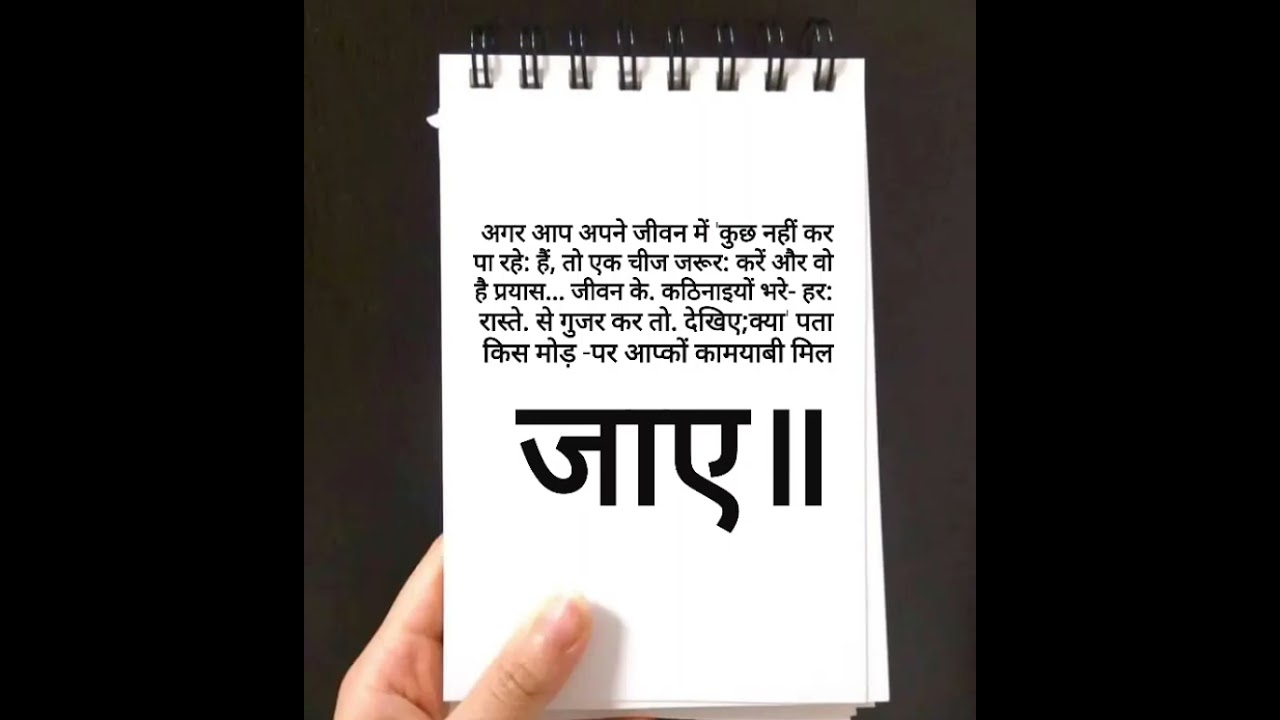 अगर आप अपने जीवन में 'कुछ नहीं कर
पा रहे: हैं, तो एक चीज जरूर: करें और वो
है प्रयास... जीवन के. कठिनाइयों भरे- हर:
रास्ते. से गुजर कर तो. देखिए;क्या' पता
किस मोड़ -पर आप्कों कामयाबी मिल
जाए॥